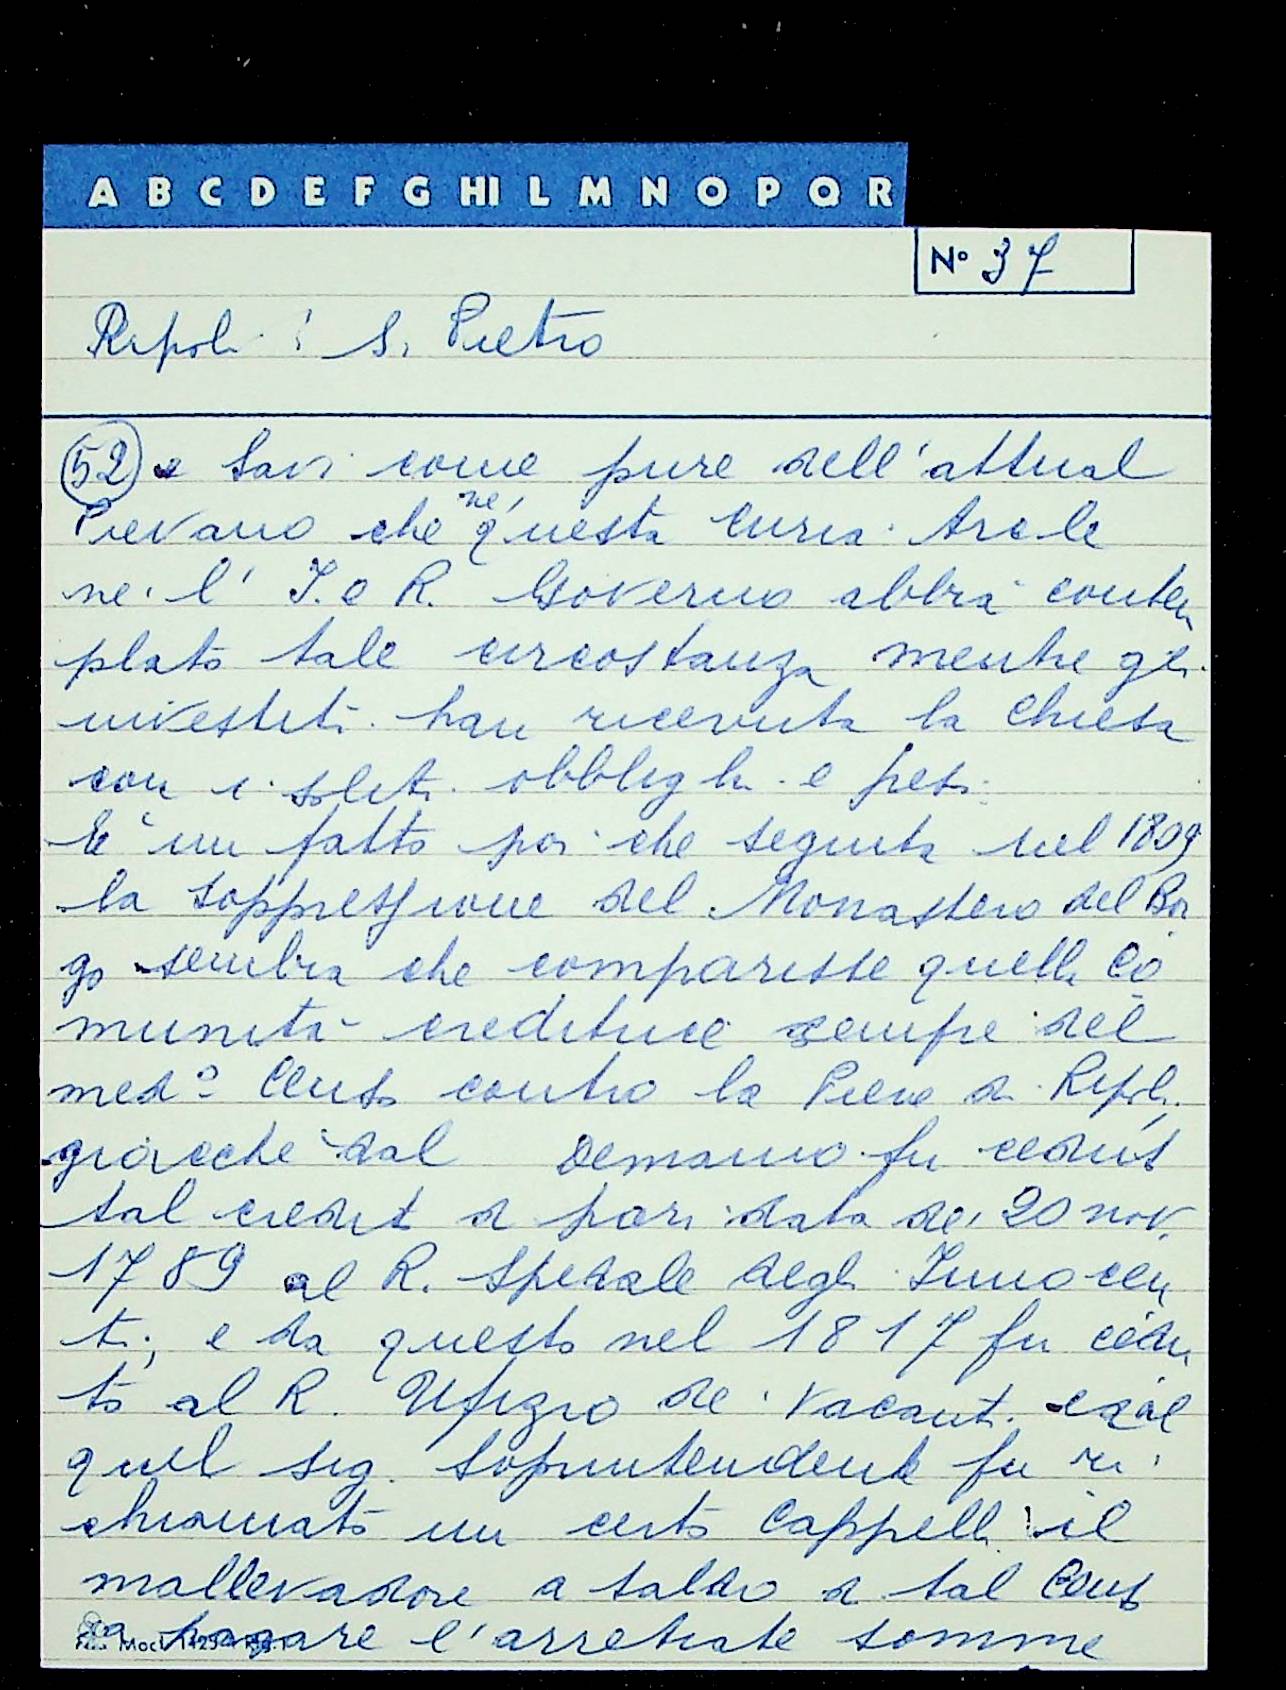 A B C D E F G HI L M N O P Q R
N° 37
Ripoli : S. Pietro
(52) e Savi come pure dell'attual
Pievano che nè, questa Curia Arcle
nè l' I. e R. Governo abbia contem
plato tale circostanza mentre gl
investiti han ricevuta la Chiesa
con i soliti obblighi e pesi.
E' un fatto poi che seguita nel 1809
la soppressione del Monastero del Bor
go sembra che comparisse quella Co
munità creditrice sempre del
med° Censo contro la Pieve di Ripoli,
giacchè dal Demanio fu ceduto
tal credit di pari data de' 20 nov.
1789 al R. Spedale degli Innocen
ti, e da questo nel 1817 fu cedu
to al R. Ufizio de' Vacanti e al
quel sig. Soprintendente fu ri
chiamato un certo Cappelli il
mallevadore a saldo di tal Censo
a pagare l'arretrate somme